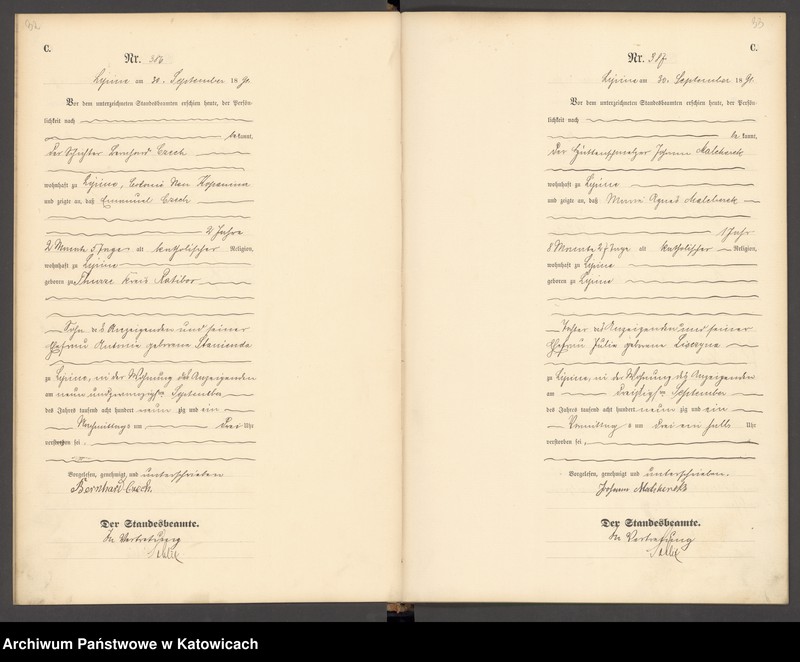 C.
Nr. 386
Lipine am 30. September 1891.
Vor dem unterzeichneten Standesbeamten erschien heute, der Persön-
lichkeit nach
bekannt,
der Bernhard Czech
wohnhaft zu Lipine, Colonie Neu
und zeigte an, daß Emanuel Czech
2 Jahre
2 Monate 5 Tage alt katholischer Religion,
wohnhaft zu Lipine
geboren zu Kreis Ratibor
Sohn des Anzeigenden und seiner
Ehefrau Antonie geborene
zu Lipine, in der Wohnung des Anzeigenden
am neun und zwanzigsten September
des Jahres tausend acht hundert neunzig und ein
Nachmittags um drei Uhr
verstorben sei.
Vorgelesen, genehmigt und unterschrieben
Bernhard Czech.
Der Standesbeamte.
In Vertretung
33
C.
Nr. 387
Lipine am 30. September 1891.
Vor dem unterzeichneten Standesbeamten erschien heute, der Persön-
lichkeit nach
bekannt,
der Hüttenschmelzer Johann Malcherek
wohnhaft zu Lipine
und zeigte an, daß Marie Agnes Malcherek
1 Jahr
8 Monate 27 Tage alt katholischer Religion,
wohnhaft zu Lipine
geboren zu Lipine
Tochter des Anzeigenden und seiner
Ehefrau Julie geborene
zu Lipine, in der Wohnung des Anzeigenden
am dreißigsten September
des Jahres tausend acht hundert neunzig und ein
Vormittags um drei ein halb Uhr
verstorben sei.
Vorgelesen, genehmigt und unterschrieben.
Johann
Der Standesbeamte.
In Vertretung
Archiwum Państwowe w Katowicach